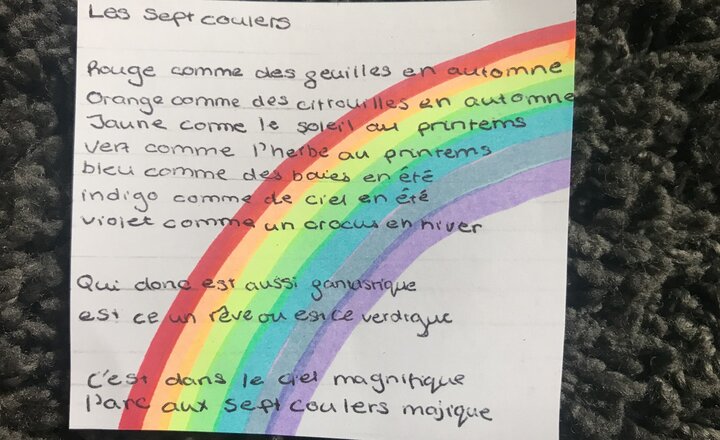 Les sept coulers
Rouge comme des feuilles en automne
Orange comme des citrouilles en automne
Jaune come le soleil au printems
vert comme l'herbe au printems
bleu comme des baies en été
indigo comme de ciel en été
violet comme un crocus en hiver
Qui donc est aussi fantastrique
est ce un rêve ou est ce verdique
C'est dans le ciel magnifique
l'arc aux sept coulers majique